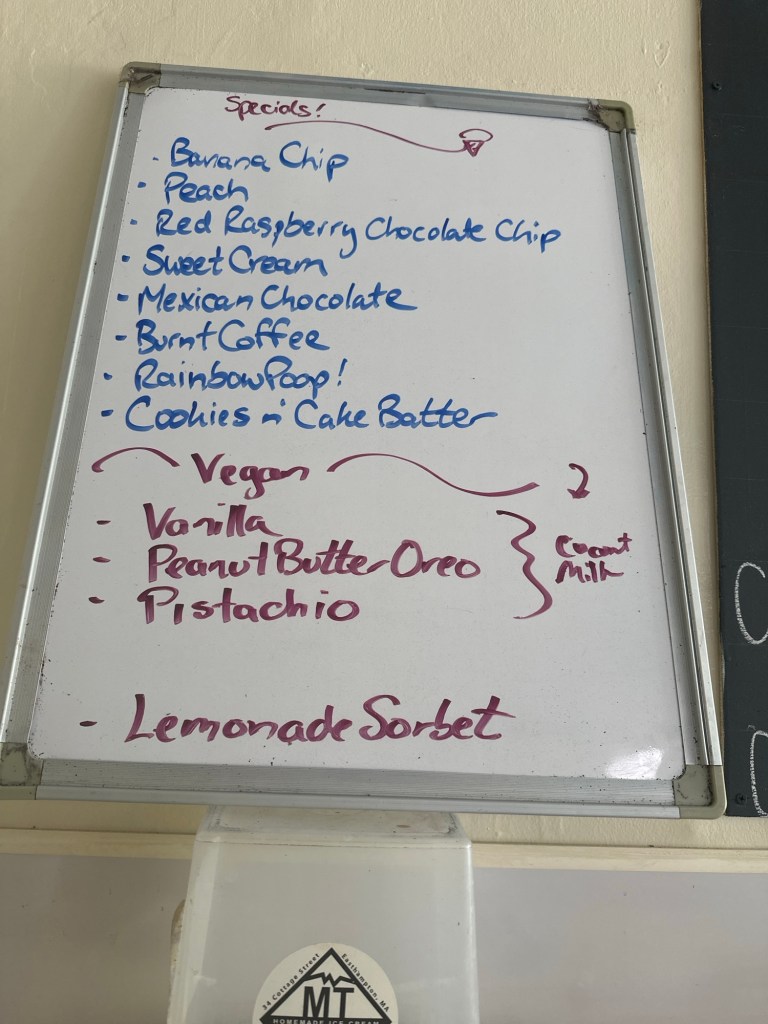 Specials!
- Banana Chip
- Peach
- Red Raspberry Chocolate Chip
- Sweet Cream
- Mexican Chocolate
- Burnt Coffee
- Rainbow Poop!
- Cookies n' Cake Batter
Vegan
- Vanilla
- Peanut Butter Oreo
- Pistachio
Coconut
Milk
- Lemonade Sorbet
34 Cottage Street Easthampton, MA
MT
HOMEMADE ICE CREAM